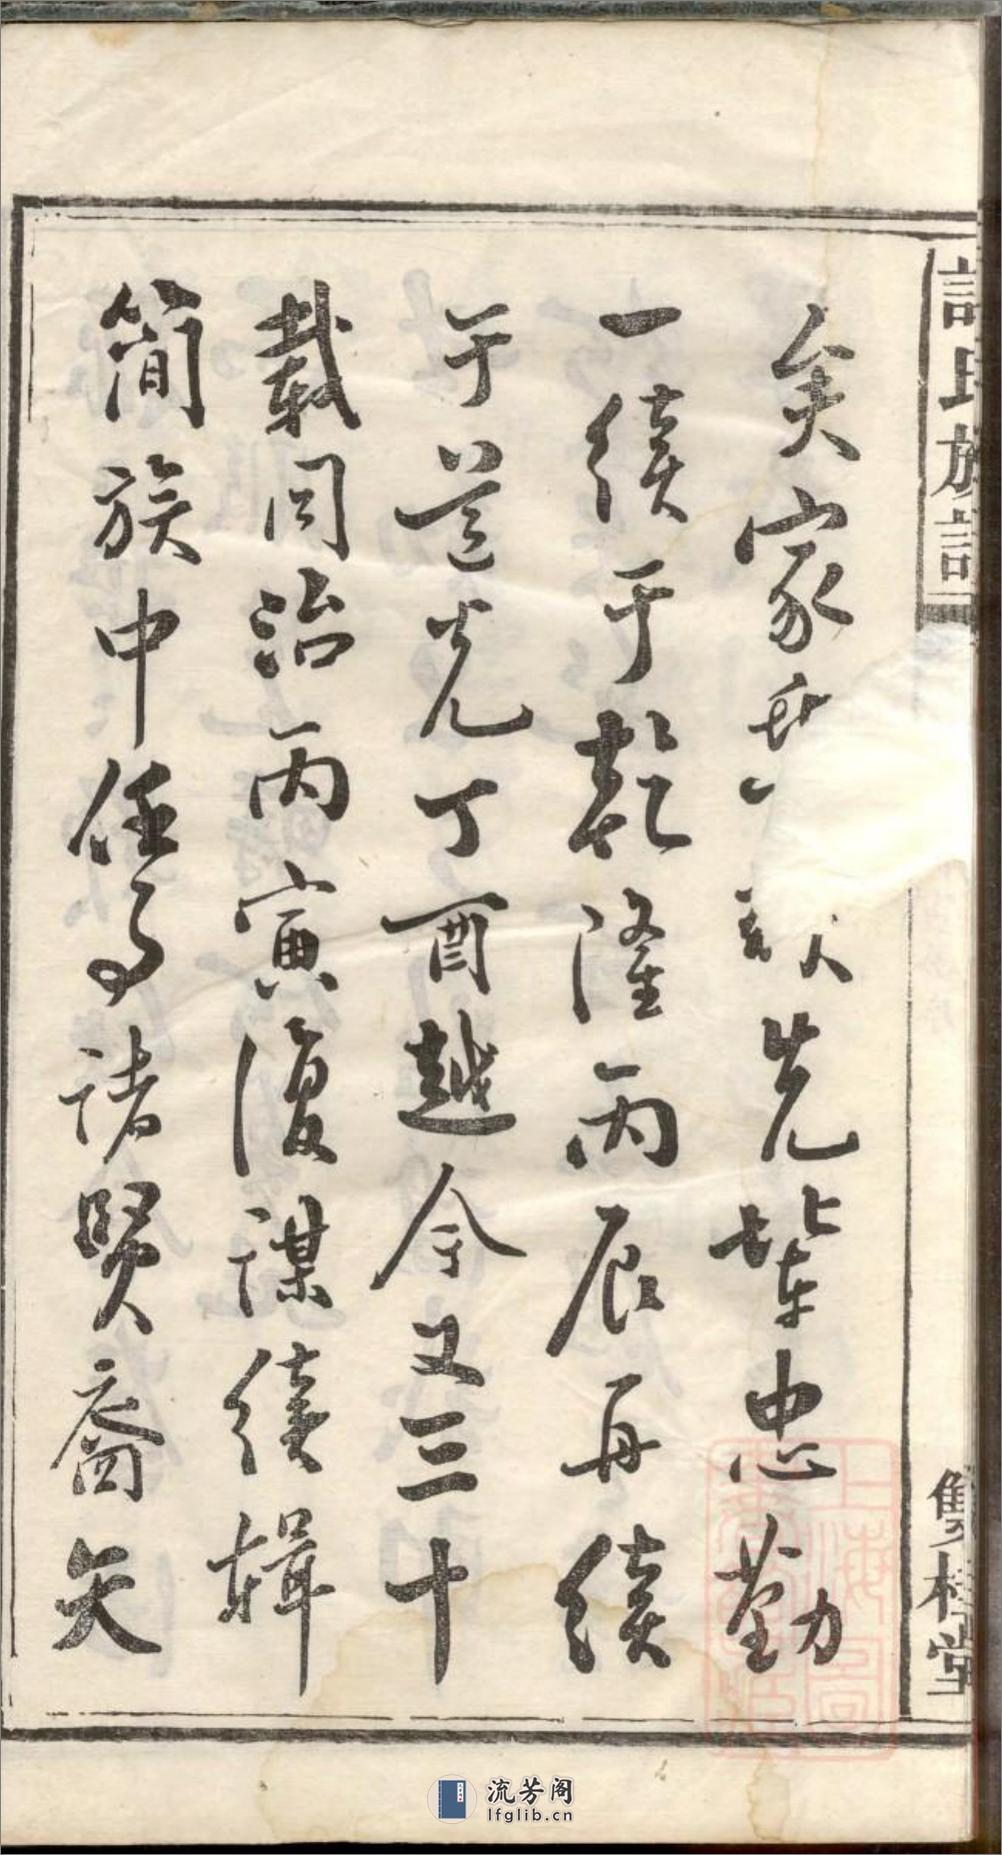 氏族
雙桂堂
矣家先輩忠勤
一續于乾隆丙辰再續
于道光丁酉越今又三十
載同治丙寅復謀續輯
簡族中任事諸賢裔矢
上海圖
書館藏
流芳阁
lfglib.cn